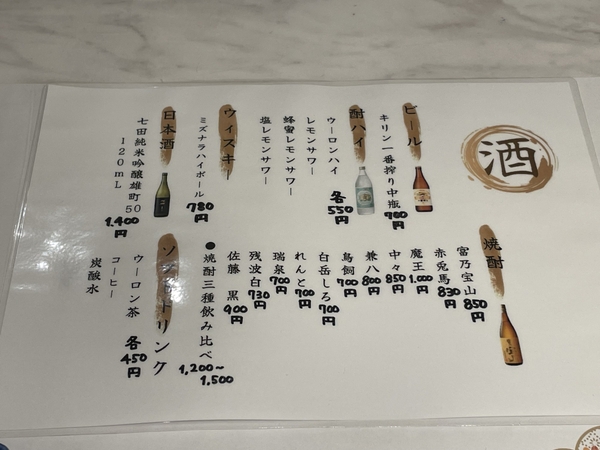 酒
ビール
キリン一番搾り中瓶
700円
酎ハイ
ウーロンハイ
レモンサワー
蜂蜜レモンサワー
塩レモンサワー
各550円
ウィスキー
ミズナラハイボール
780円
日本酒
七田純米吟醸雄町50
120mL
1,400円
焼酎
富乃宝山 850円
赤兎馬 830円
魔王 1,000円
中々 850円
兼八 800円
鳥飼 700円
白岳しろ 700円
れんと 700円
瑞泉 700円
残波白 730円
佐藤 黒 900円
●焼酎三種飲み比べ
1,200~1,500
ソフトドリンク
ウーロン茶
コーヒー
炭酸水
各450円